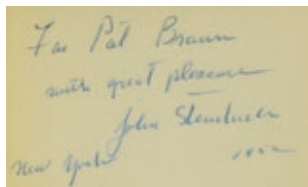 For Pat Braun
with great pleasure
John Steinbeck
New York